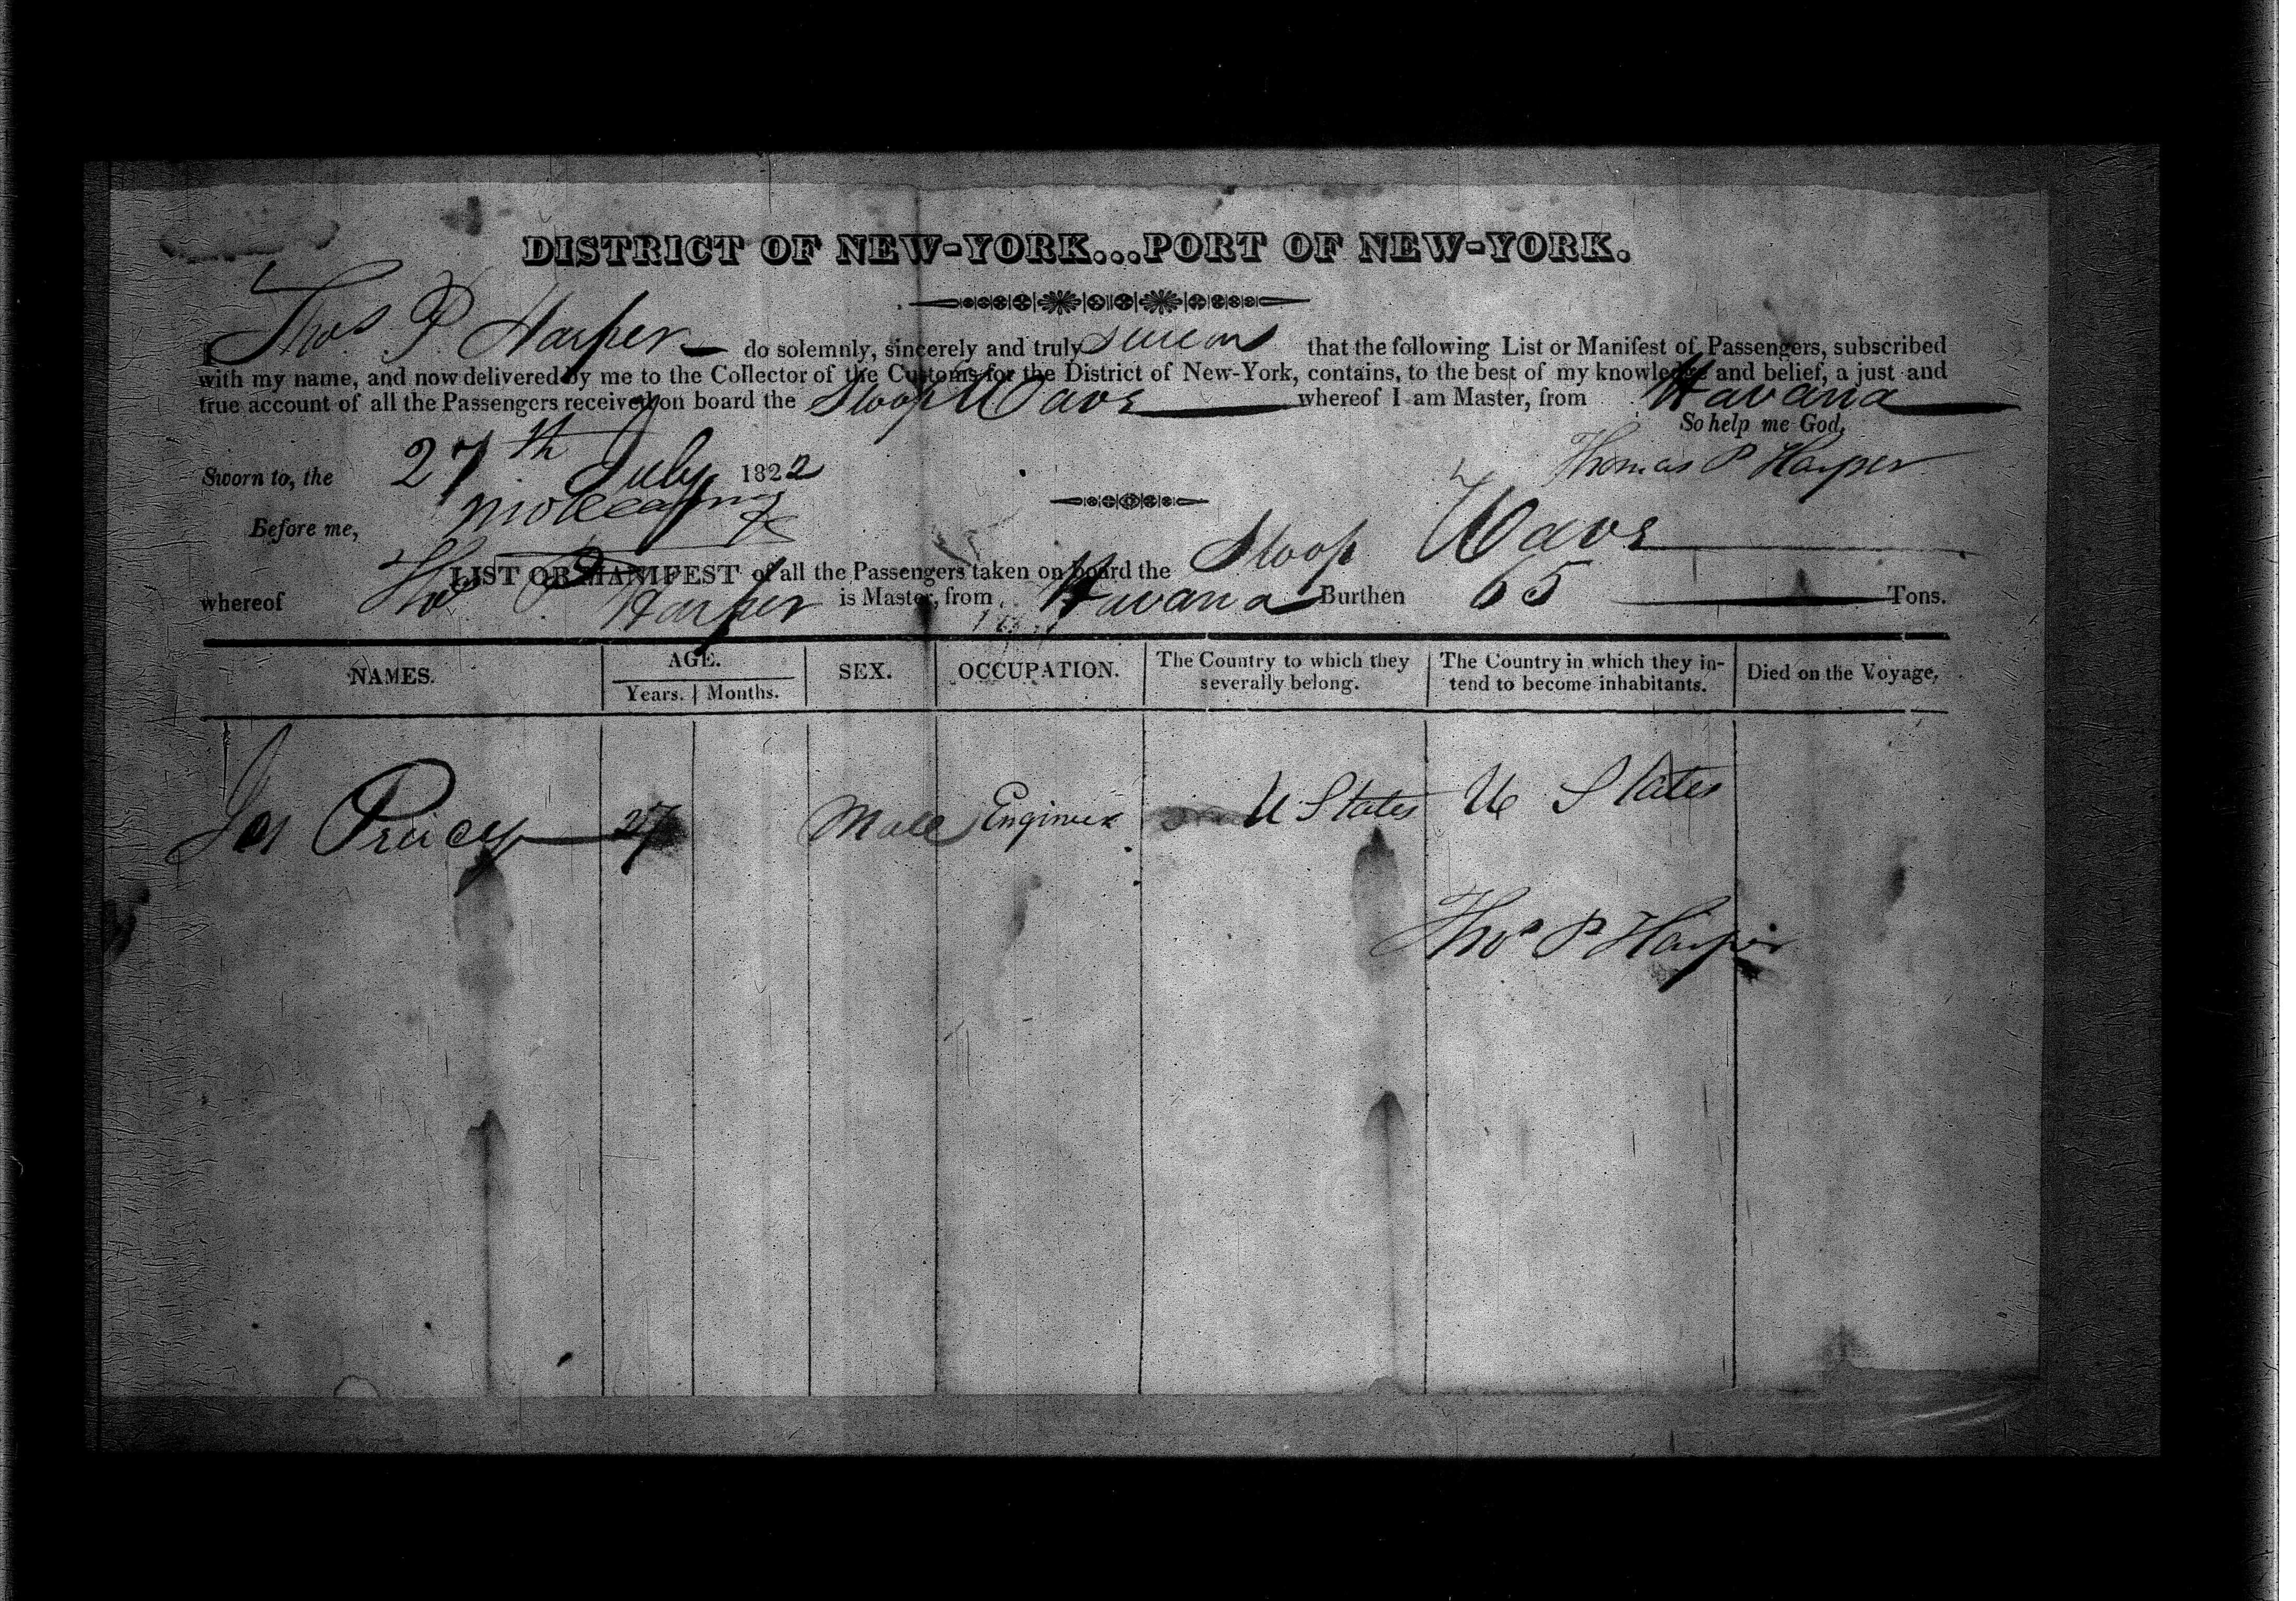 DISTRICT OF NEW-YORK...PORT OF NEW-YORK.
I Thos P Harper do solemnly, sincerely and truly swear that the following List or Manifest of Passengers, subscribed
with my name, and now delivered by me to the Collector of the Customs for the District of New-York, contains, to the best of my knowledge and belief, a just and
true account of all the Passengers received on board the Sloop Wave whereof I am Master, from Havana
So help me God.
Sworn to, the 27th July 1822 Thomas P Harper
Before me,
LIST OR MANIFEST of all the Passengers taken on board the Sloop Wave
whereof Thos P Harper is Master, from Havana Burthen 65 Tons.
NAMES. AGE. SEX. OCCUPATION. The Country to which they severally belong. The Country in which they intend to become inhabitants. Died on the Voyage.
Years. Months.
Jas 27 Male Engineer U States U States
Thos P Harper